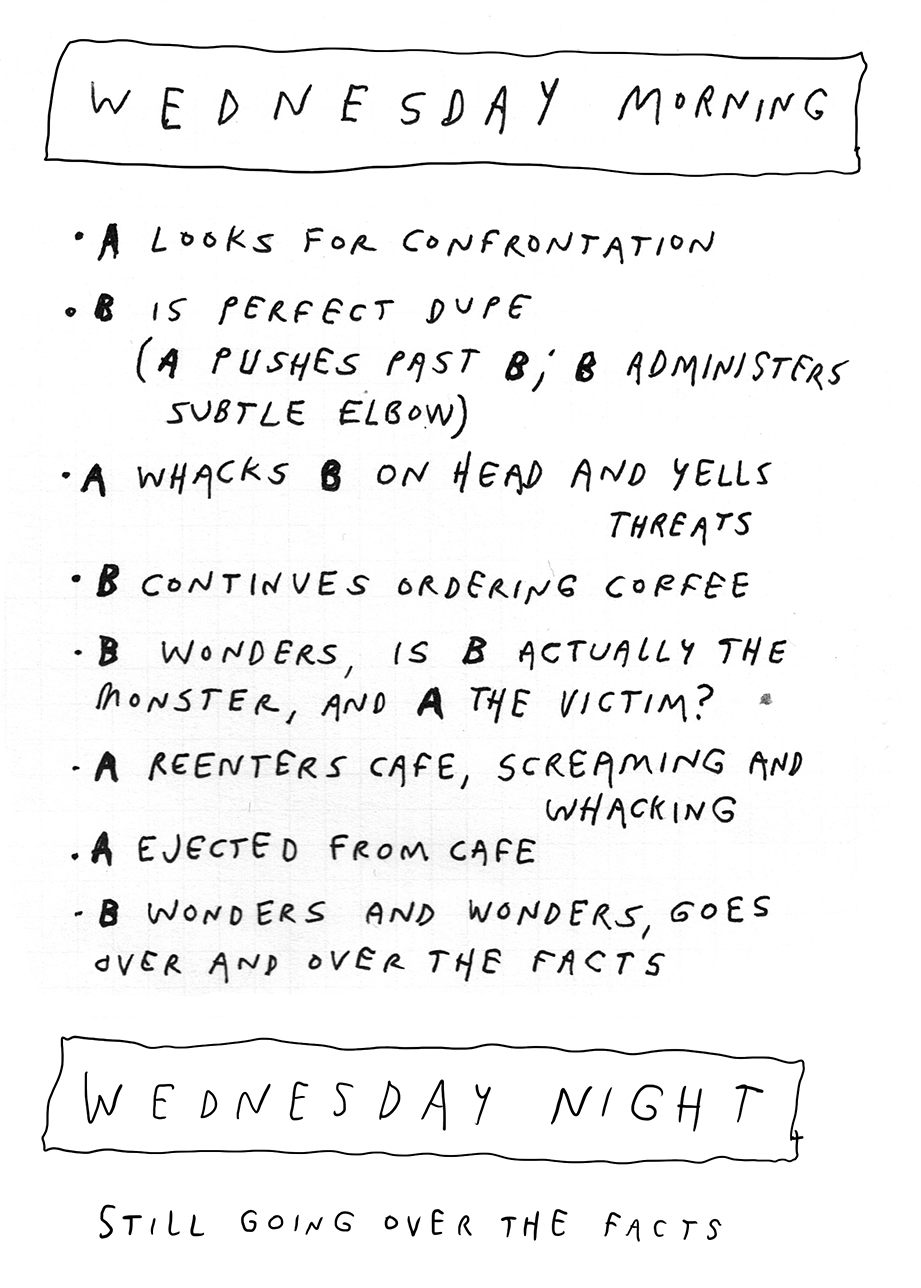 WEDNESDAY MORNING
• A LOOKS FOR CONFRONTATION
• B IS PERFECT DUPE
(A PUSHES PAST B; B ADMINISTERS
SUBTLE ELBOW)
• A WHACKS B ON HEAD AND YELLS
THREATS
• B CONTINUES ORDERING COFFEE
• B WONDERS, IS B ACTUALLY THE
MONSTER, AND A THE VICTIM?
• A REENTERS CAFE, SCREAMING AND
WHACKING
• A EJECTED FROM CAFE
- B WONDERS AND WONDERS, GOES
OVER AND OVER THE FACTS
WEDNESDAY NIGHT
STILL GOING OVER THE FACTS